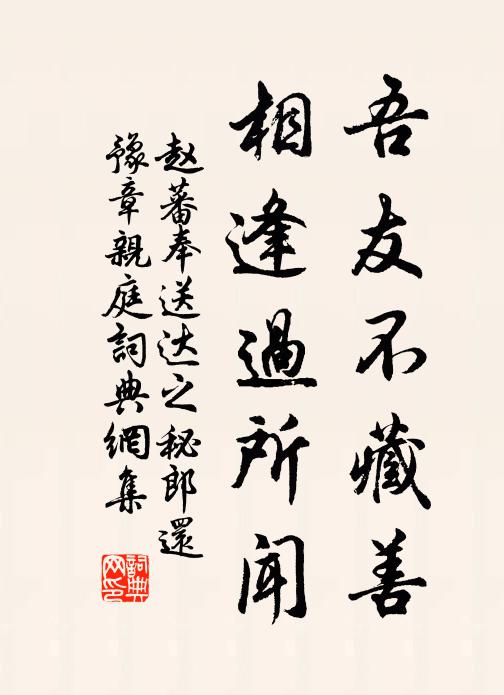 吾友不藏善
相逢過所聞
赵蕃奉送达之秘郎還
豫章親庭詞典網集
詞典网印